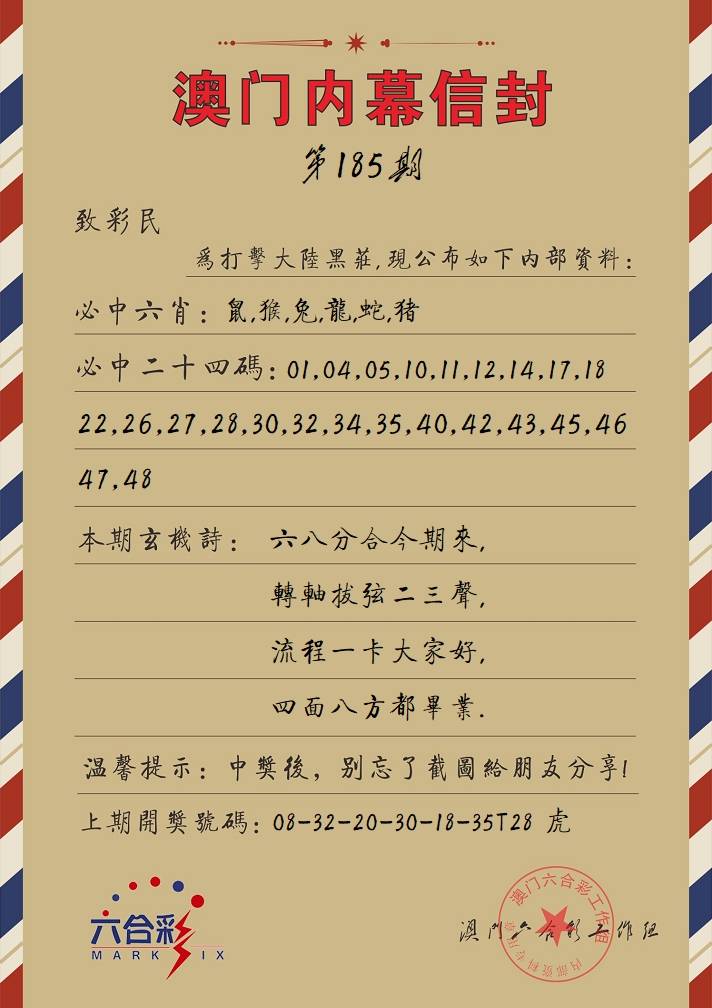 澳门内幕信封
第185期
致彩民
為打擊大陸黑莊,現公布如下内部資料:
必中六肖:鼠,猴,兔,龍,蛇,猪
必中二十四碼:01,04,05,10,11,12,14,17,18
22,26,27,28,30,32,34,35,40,42,43,45,46
47,48
本期玄機詩: 六八分合今期來,
轉軸拔弦二三聲,
流程一卡大家好,
四面八方都畢業.
温馨提示:中獎後,别忘了截圖給朋友分享!
上期開獎號碼:08-32-20-30-18-35T28 虎
六合彩
MARK SIX
澳门六合彩工作组
澳门六合彩工作组
内部资料专用章